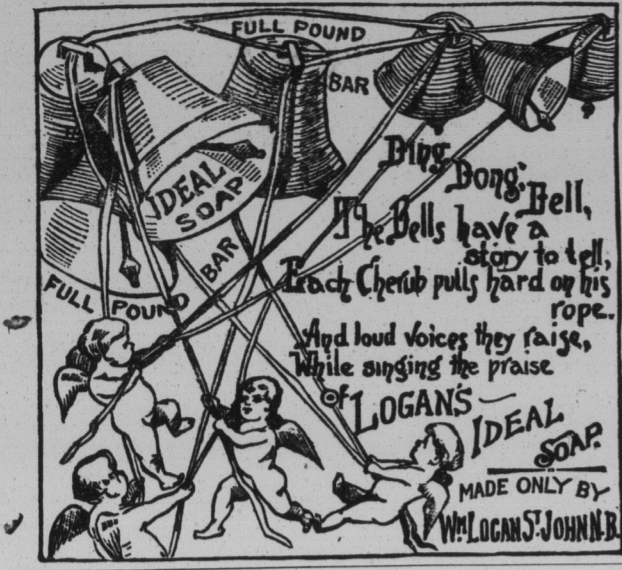 FULL POUND
BAR
IDEAL
SOAP
FULL POUND BAR
Ding,
Dong,
Bell,
The Bells have a
story to tell,
Each Cherub pulls hard on his
rope.
And loud voices they raise,
While singing the praise
of LOGAN'S
IDEAL
SOAP.
MADE ONLY BY
Wm LOGAN ST. JOHN N.B.